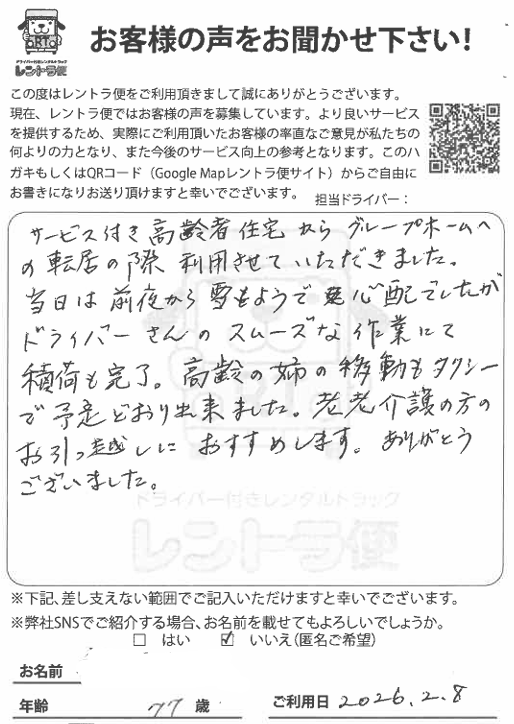 RT
ドライバー付きレンタルトラック
レントラ便
お客様の声をお聞かせ下さい!
この度はレントラ便をご利用頂きまして誠にありがとうございます。
現在、レントラ便ではお客様の声を募集しています。より良いサービス
を提供するため、実際にご利用頂いたお客様の率直なご意見が私たちの
何よりの力となり、また今後のサービス向上の参考となります。このハ
ガキもしくはQRコード(Google Mapレントラ便サイト)からご自由に
お書きになりお送り頂けますと幸いでございます。 担当ドライバー:
サービス付き高齢者住宅からグループホームへ
の転居の際利用させていただきました。
当日は前夜から雪もようで心配でしたが
ドライバーさんのスムーズな作業にて
積荷も完了。高齢の姉の移動もタクシー
で予定どおり出来ました。老老介護の方の
お引っ越しにおすすめします。ありがとう
ございました。
ドライバー付きレンタルトラック
レントラ便
※下記、差し支えない範囲でご記入いただけますと幸いでございます。
※弊社SNSでご紹介する場合、お名前を載せてもよろしいでしょうか。
□ はい ☑ いいえ(匿名ご希望)
お名前
年齢 77 歳 ご利用日 2026.2.8